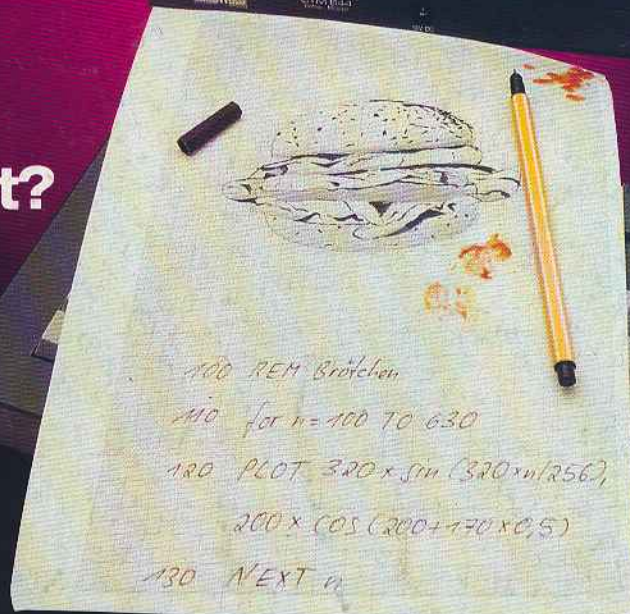 t?
100 REM Brötchen
110 for n=100 TO 630
120 PLOT 320 x sin (320xn/256),
200 x COS (200+170x0,5)
130 NEXT n